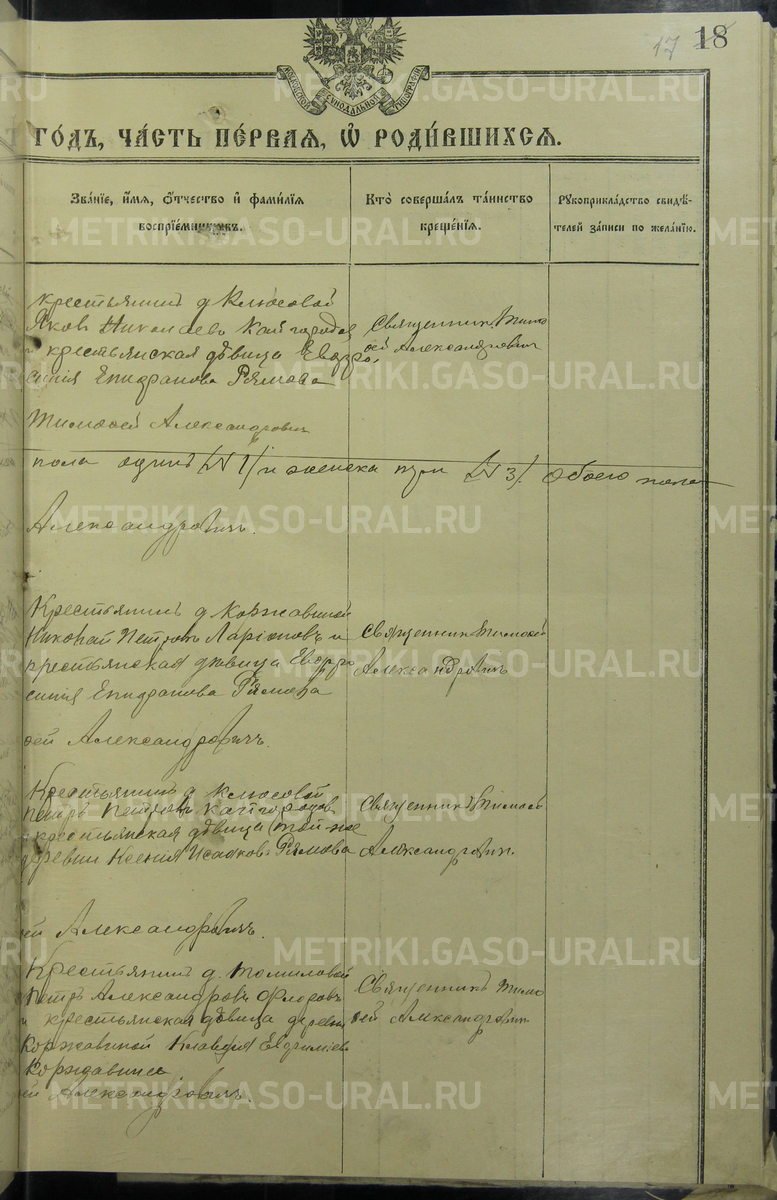 17 18
МОСКОВСКОЙ СѴНОДАЛЬНОЙ ТИПОГРАФІИ
ГО́ДЪ, ЧА́СТЬ ПЕ́РВАЯ, Ѽ РОДИ́ВШИХСЯ.
Зва́нїе, и҆́мя, ѻ҆́тчество и҆ фами́лїя
воспрїе́мниковъ.
Кто̀ соверша́лъ та́инство
креще́нїя.
Рꙋкоприкла́дство свидѣ́-
телей за́писи по жела́нїю.
крестьянинъ д Клюсовой
Яковъ Николаевъ Кайгородов
и крестьянская дѣвица Евфро
синія Епифанова Рямова
Священникъ Тимо
ѳей Александровичъ
Тимоѳей Александровичъ
пола одинъ (№ 1) и женска три (№ 3). Обоего пола
Александровичъ.
Крестьянинъ д Коржавиной
Николай Петровъ Ларіоновъ и
крестьянская дѣвица Евфро
синія Епифанова Рямова
Священникъ Тимоѳей
Александровичъ
ѳей Александровичъ.
Крестьянинъ д Клюсовой
Петръ Петровъ Кайгородовъ
и крестьянская дѣвица той же
деревни Ксенія Исаакова Рямова
Священникъ Тимоѳей
Александровичъ.
ей Александровичъ.
Крестьянинъ д. Томиловой
Петръ Александровъ Флоровъ
и крестьянская дѣвица деревни
Коржавиной Клавдія Евфиміева
Коржавина
Священникъ Тимо
ѳей Александровичъ
ей Александровичъ.
METRIKI.GASO-URAL.RU